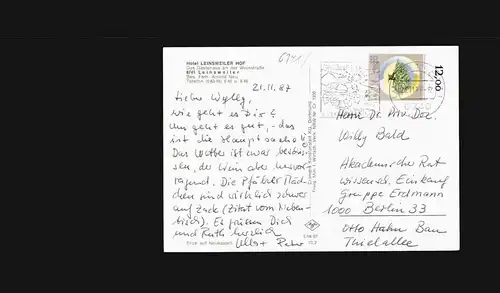 Hotel LEINSWEILER HOF
Das Gästehaus an der Weinstraße
6741 Leinsweiler
Bes. Fam. Arnold Neu
21.11.87
Liebe
wie geht es Dir?
Uns geht es gut, das
ist die Hauptsache.
Das Wetter ist zwar
der Wein aber hervor-
ragend. Die Pfälzer
den sind wirklich schwer
auf Zack (Zitat vom Neben-
tisch). Es grüssen Dich
und Ruth herzlich
Peter
12,00
Herrn Dr. Priv. Doz.
Willy Bald
Akademischer Rat
wissensch. Einkauf
Gruppe Erdmann
1000 Berlin 33
Otto Hahn Bau
Thielallee